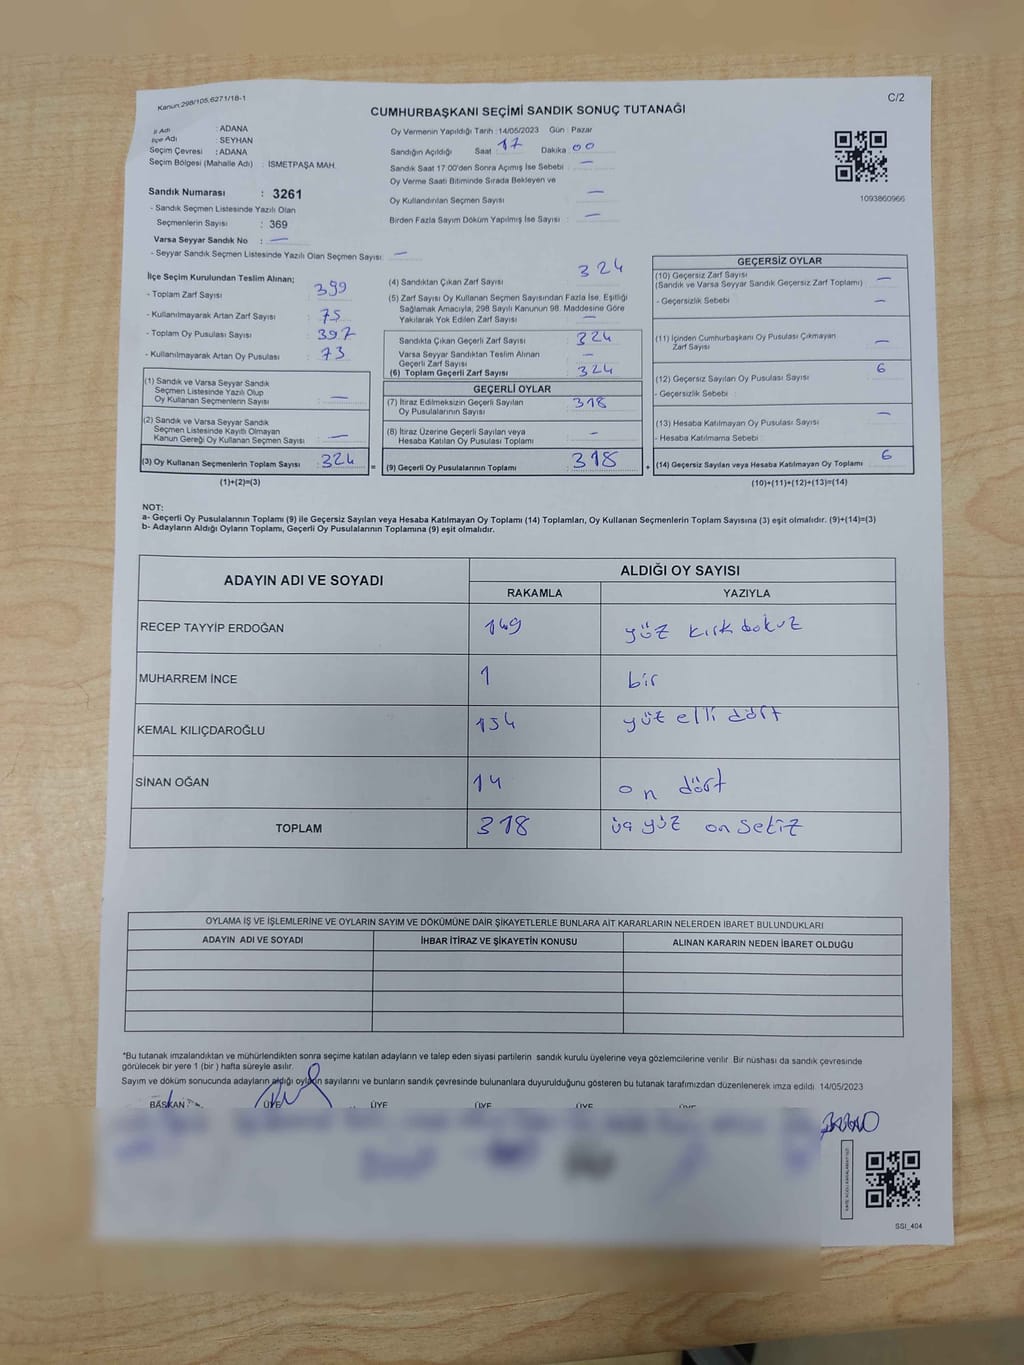 Kanun:298/105,6271/18-1
C/2
CUMHURBAŞKANI SEÇİMİ SANDIK SONUÇ TUTANAĞI
İl Adı : ADANA
İlçe Adı : SEYHAN
Seçim Çevresi : ADANA
Seçim Bölgesi (Mahalle Adı) : İSMETPAŞA MAH.
Oy Vermenin Yapıldığı Tarih :14/05/2023 Gün : Pazar
Sandığın Açıldığı Saat 17 Dakika 00
Sandık Saat 17.00'den Sonra Açımış İse Sebebi : —
Oy Verme Saati Bitiminde Sırada Bekleyen ve
Oy Kullandırılan Seçmen Sayısı —
Birden Fazla Sayım Döküm Yapılmış İse Sayısı : —
1093860966
Sandık Numarası : 3261
- Sandık Seçmen Listesinde Yazılı Olan
Seçmenlerin Sayısı : 369
Varsa Seyyar Sandık No : —
- Seyyar Sandık Seçmen Listesinde Yazılı Olan Seçmen Sayısı: —
İlçe Seçim Kurulundan Teslim Alınan;
- Toplam Zarf Sayısı : 399
- Kullanılmayarak Artan Zarf Sayısı : 75
- Toplam Oy Pusulası Sayısı : 397
- Kullanılmayarak Artan Oy Pusulası : 73
(1) Sandık ve Varsa Seyyar Sandık
Seçmen Listesinde Yazılı Olup
Oy Kullanan Seçmenlerin Sayısı : —
(2) Sandık ve Varsa Seyyar Sandık
Seçmen Listesinde Kayıtlı Olmayan
Kanun Gereği Oy Kullanan Seçmen Sayısı : —
(3) Oy Kullanan Seçmenlerin Toplam Sayısı : 324
(1)+(2)=(3)
(4) Sandıktan Çıkan Zarf Sayısı : 324
(5) Zarf Sayısı Oy Kullanan Seçmen Sayısından Fazla İse, Eşitliği
Sağlamak Amacıyla; 298 Sayılı Kanunun 98. Maddesine Göre
Yakılarak Yok Edilen Zarf Sayısı : —
Sandıkta Çıkan Geçerli Zarf Sayısı : 324
Varsa Seyyar Sandıktan Teslim Alınan
Geçerli Zarf Sayısı : —
(6) Toplam Geçerli Zarf Sayısı : 324
GEÇERLİ OYLAR
(7) İtiraz Edilmeksizin Geçerli Sayılan
Oy Pusulalarının Sayısı : 318
(8) İtiraz Üzerine Geçerli Sayılan veya
Hesaba Katılan Oy Pusulası Toplamı : —
= (9) Geçerli Oy Pusulalarının Toplamı : 318
GEÇERSİZ OYLAR
(10) Geçersiz Zarf Sayısı
(Sandık ve Varsa Seyyar Sandık Geçersiz Zarf Toplamı) : —
- Geçersizlik Sebebi : —
(11) İçinden Cumhurbaşkanı Oy Pusulası Çıkmayan
Zarf Sayısı : —
(12) Geçersiz Sayılan Oy Pusulası Sayısı : 6
- Geçersizlik Sebebi :
(13) Hesaba Katılmayan Oy Pusulası Sayısı : —
- Hesaba Katılmama Sebebi :
+ (14) Geçersiz Sayılan veya Hesaba Katılmayan Oy Toplamı : 6
(10)+(11)+(12)+(13)=(14)
NOT:
a- Geçerli Oy Pusulalarının Toplamı (9) ile Geçersiz Sayılan veya Hesaba Katılmayan Oy Toplamı (14) Toplamları, Oy Kullanan Seçmenlerin Toplam Sayısına (3) eşit olmalıdır. (9)+(14)=(3)
b- Adayların Aldığı Oyların Toplamı, Geçerli Oy Pusulalarının Toplamına (9) eşit olmalıdır.
ADAYIN ADI VE SOYADI
ALDIĞI OY SAYISI
RAKAMLA YAZIYLA
RECEP TAYYİP ERDOĞAN 149 yüz kırk dokuz
MUHARREM İNCE 1 bir
KEMAL KILIÇDAROĞLU 154 yüz elli dört
SİNAN OĞAN 14 on dört
TOPLAM 318 üç yüz on sekiz
OYLAMA İŞ VE İŞLEMLERİNE VE OYLARIN SAYIM VE DÖKÜMÜNE DAİR ŞİKAYETLERLE BUNLARA AİT KARARLARIN NELERDEN İBARET BULUNDUKLARI
ADAYIN ADI VE SOYADI İHBAR İTİRAZ VE ŞİKAYETİN KONUSU ALINAN KARARIN NEDEN İBARET OLDUĞU
*Bu tutanak imzalandıktan ve mühürlendikten sonra seçime katılan adayların ve talep eden siyasi partilerin sandık kurulu üyelerine veya gözlemcilerine verilir. Bir nüshası da sandık çevresinde
görülecek bir yere 1 (bir ) hafta süreyle asılır.
Sayım ve döküm sonucunda adayların aldığı oyların sayılarını ve bunların sandık çevresinde bulunanlara duyurulduğunu gösteren bu tutanak tarafımızdan düzenlenerek imza edildi. 14/05/2023
BAŞKAN ÜYE ÜYE ÜYE ÜYE ÜYE
SSI_404